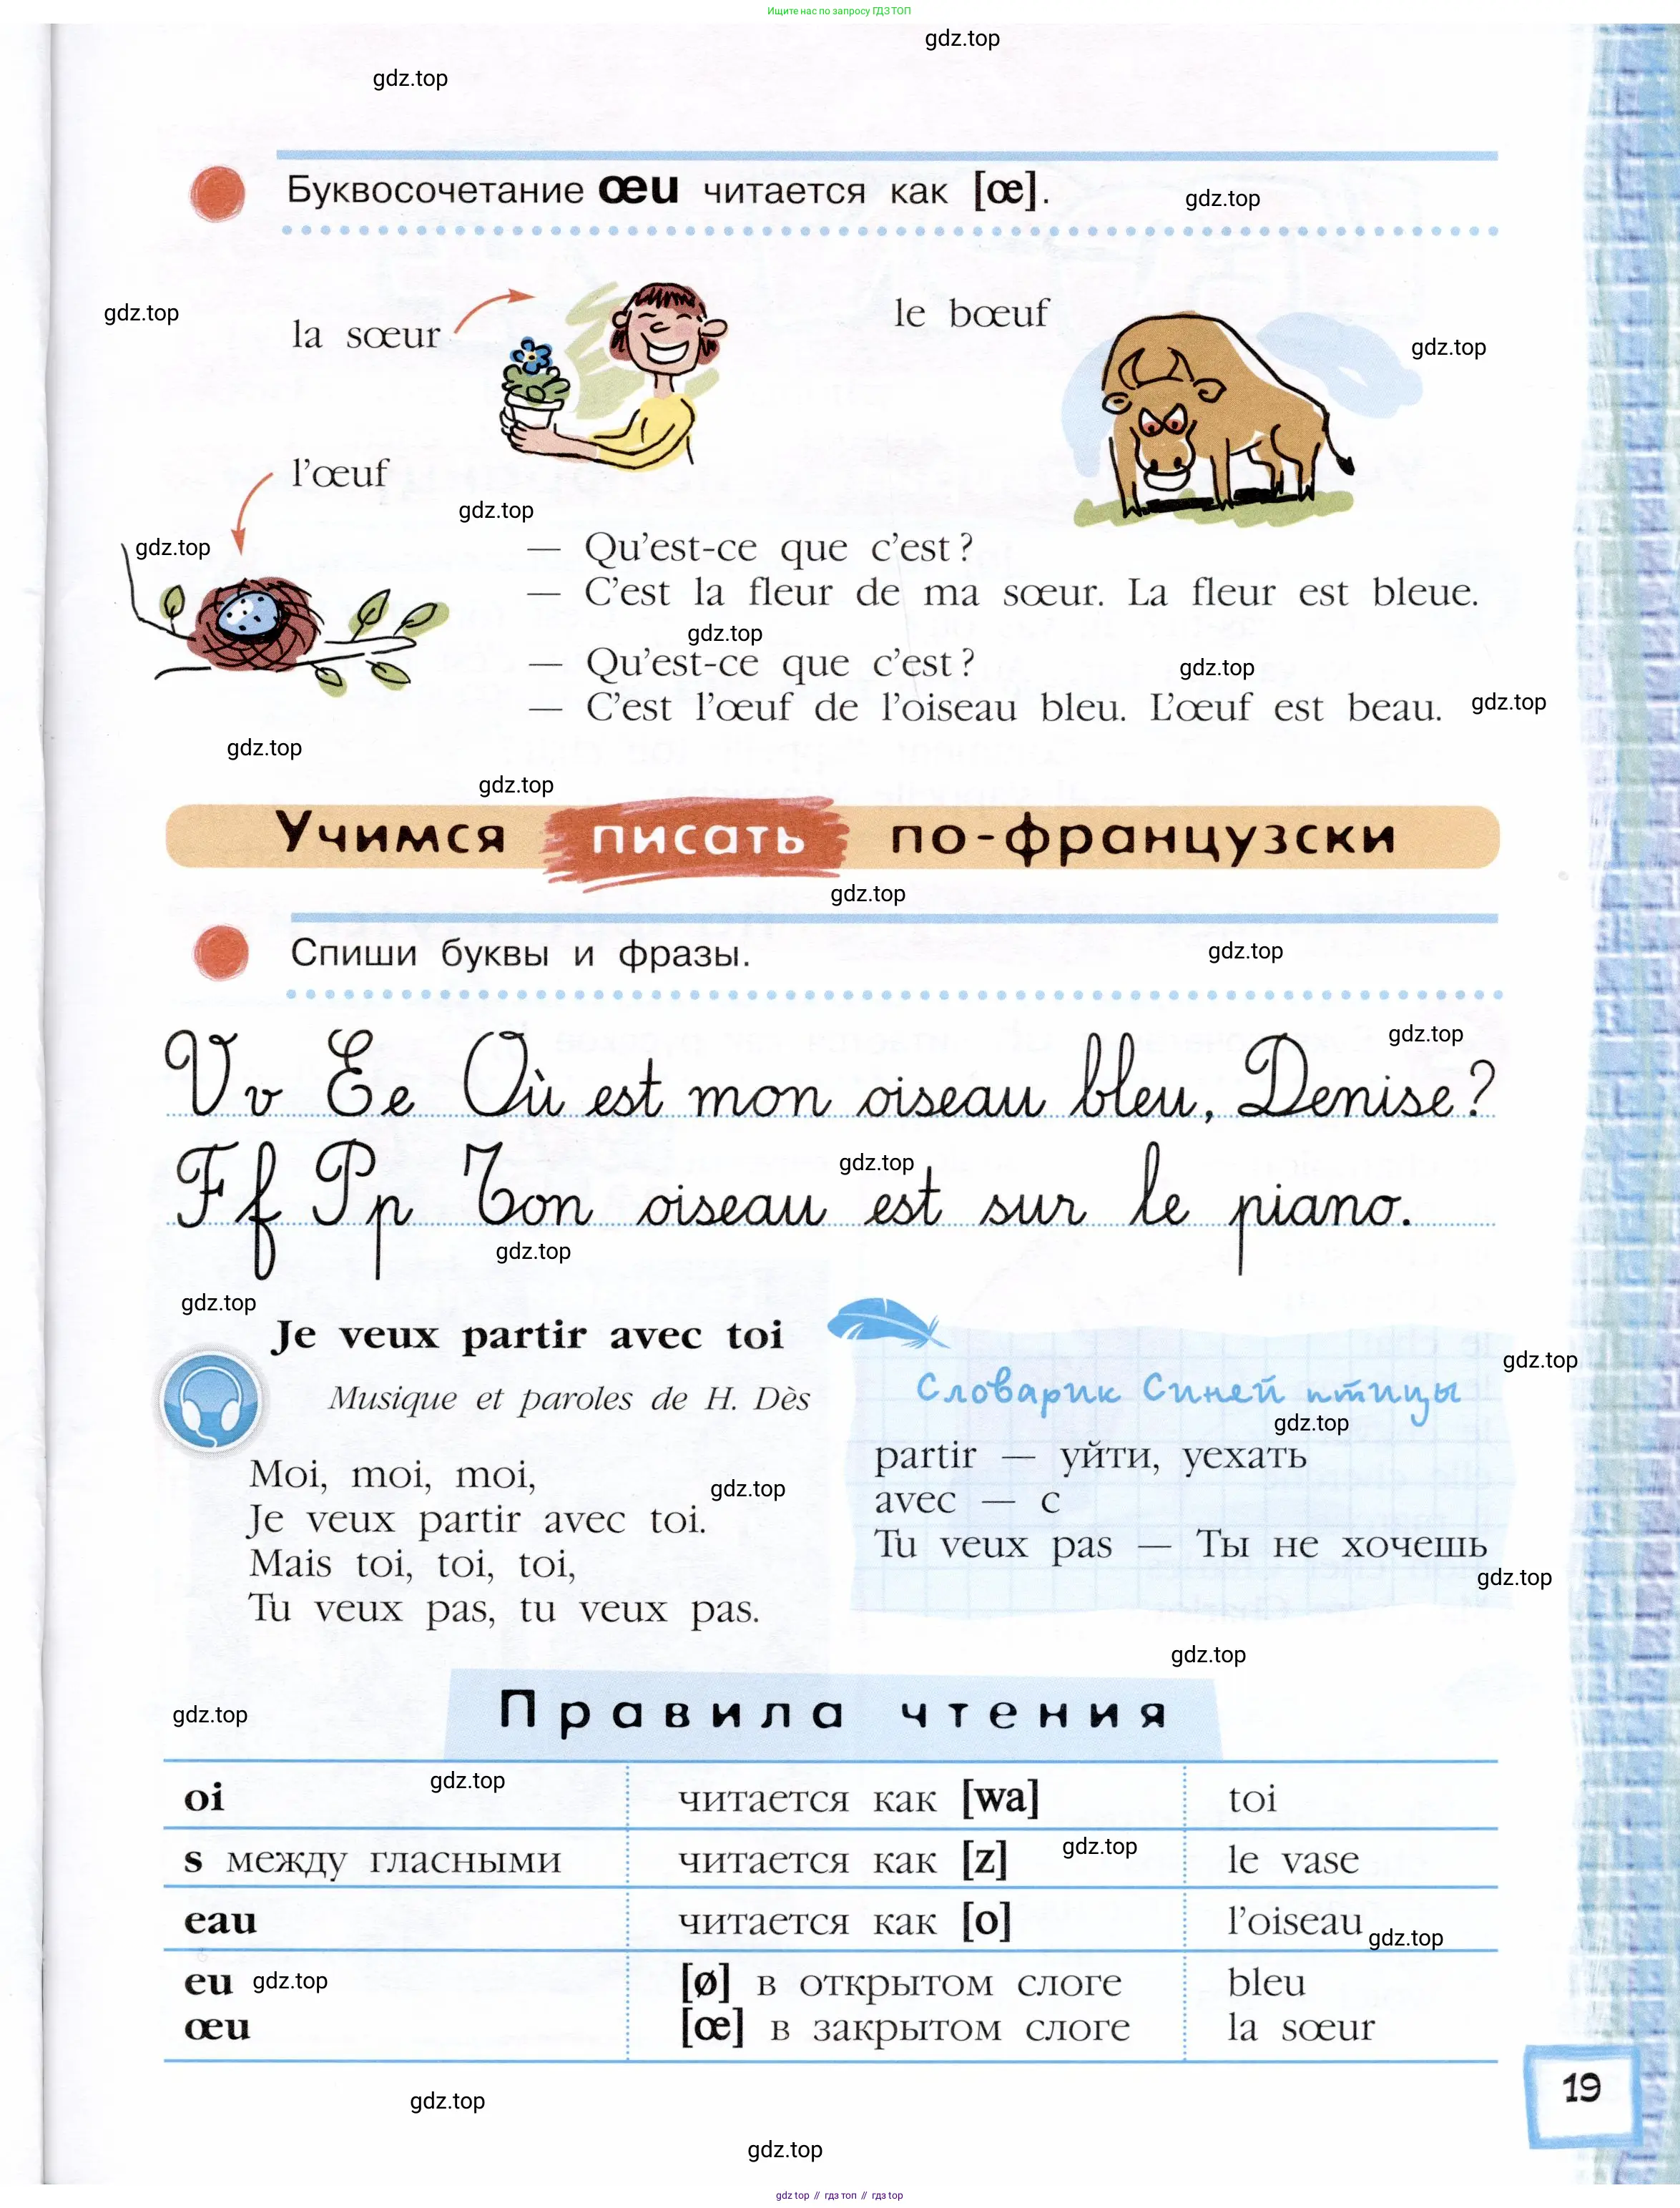 Ищите нас по запросу ГДЗ ТОП
gdz.top
gdz.top
Буквосочетание œu читается как [œ].
gdz.top
gdz.top
la sœur
le bœuf
gdz.top
l'œuf
gdz.top
gdz.top
— Qu'est-ce que c'est?
— C'est la fleur de ma sœur. La fleur est bleue.
gdz.top
— Qu'est-ce que c'est?
gdz.top
— C'est l'œuf de l'oiseau bleu. L'œuf est beau.
gdz.top
gdz.top
gdz.top
Учимся писать по-французски
gdz.top
Спиши буквы и фразы.
gdz.top
gdz.top
Vv Ee Où est mon oiseau bleu, Denise?
gdz.top
Ff Pp Ton oiseau est sur le piano.
gdz.top
gdz.top
Je veux partir avec toi
gdz.top
Musique et paroles de H. Dès
Словарик Синей птицы
gdz.top
partir — уйти, уехать
Moi, moi, moi,
gdz.top
avec — с
Je veux partir avec toi.
Tu veux pas — Ты не хочешь
Mais toi, toi, toi,
gdz.top
Tu veux pas, tu veux pas.
gdz.top
gdz.top
Правила чтения
gdz.top
oi читается как [wa] toi
gdz.top
s между гласными читается как [z] le vase
eau читается как [o] l'oiseau
gdz.top
eu [ø] в открытом слоге bleu
gdz.top
œu [œ] в закрытом слоге la sœur
19
gdz.top
gdz.top
gdz top // гдз топ // гдз top